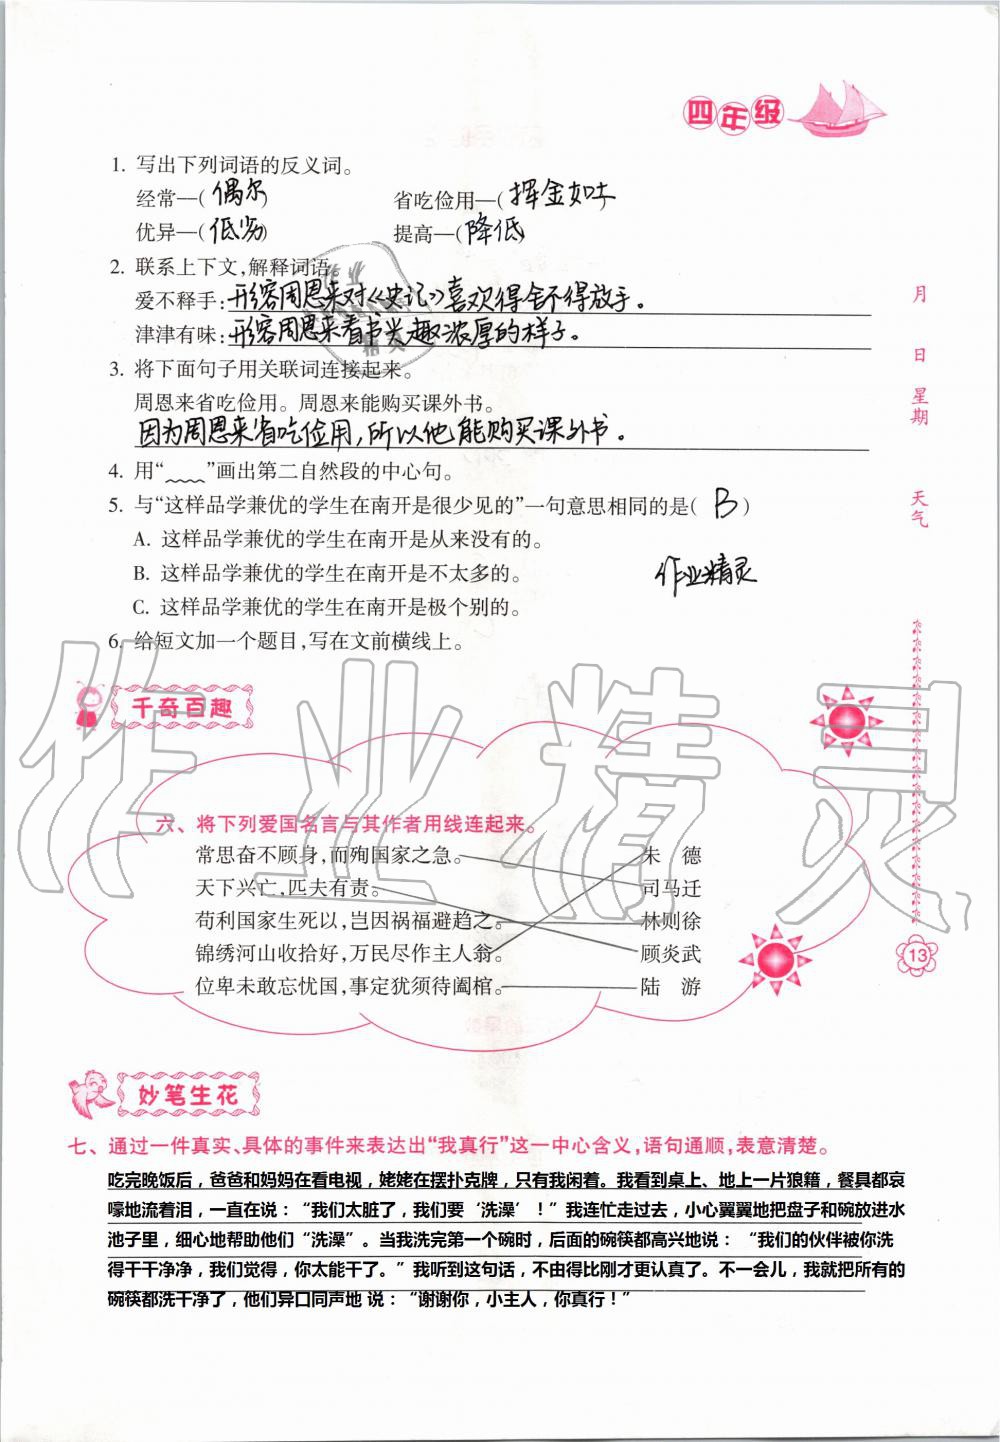 四年级
1. 写出下列词语的反义词。
经常—(偶尔) 省吃俭用—(挥金如土)
优异—(低劣) 提高—(降低)
2. 联系上下文,解释词语。
爱不释手:形容周恩来对《史记》喜欢得舍不得放手。
津津有味:形容周恩来看书兴趣浓厚的样子。
3. 将下面句子用关联词连接起来。
周恩来省吃俭用。周恩来能购买课外书。
因为周恩来省吃俭用,所以他能购买课外书。
4. 用“﹏﹏”画出第二自然段的中心句。
5. 与“这样品学兼优的学生在南开是很少见的”一句意思相同的是( B )
A. 这样品学兼优的学生在南开是从来没有的。
B. 这样品学兼优的学生在南开是不太多的。
C. 这样品学兼优的学生在南开是极个别的。
作业精灵
6. 给短文加一个题目,写在文前横线上。
月
日
星期
天气
千奇百趣
作业精灵
六、将下列爱国名言与其作者用线连起来。
常思奋不顾身,而殉国家之急。 朱 德
天下兴亡,匹夫有责。 司马迁
苟利国家生死以,岂因祸福避趋之。 林则徐
锦绣河山收拾好,万民尽作主人翁。 顾炎武
位卑未敢忘忧国,事定犹须待阖棺。 陆 游
13
妙笔生花
七、通过一件真实、具体的事件来表达出“我真行”这一中心含义,语句通顺,表意清楚。
吃完晚饭后，爸爸和妈妈在看电视，姥姥在摆扑克牌，只有我闲着。我看到桌上、地上一片狼籍，餐具都哀
嚎地流着泪，一直在说：“我们太脏了，我们要‘洗澡’！”我连忙走过去，小心翼翼地把盘子和碗放进水
池子里，细心地帮助他们“洗澡”。当我洗完第一个碗时，后面的碗筷都高兴地说： “我们的伙伴被你洗
得干干净净，我们觉得，你太能干了。”我听到这句话，不由得比刚才更认真了。不一会儿，我就把所有的
碗筷都洗干净了，他们异口同声地 说：“谢谢你，小主人，你真行！”